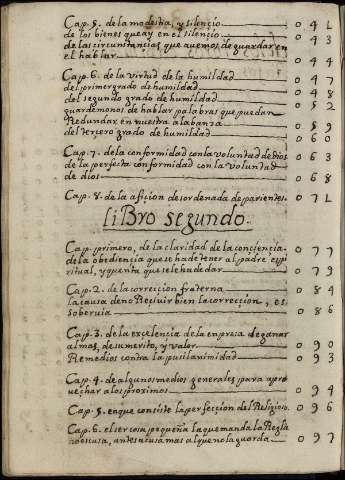 Cap. 5. de la modestia, y silencio — 0 4 1
de los bienes que ay en el silencio — 0 4 3
de las circunstancias que auemos de guardar en
el hablar — 0 4 4
Cap. 6. de la virtud de la humildad — 0 4 7
del primer grado de humildad — 0 4 8
del segundo grado de humildad — 0 5 2
guardemonos de hablar palabras que puedan
Redundar en nuestra alabanza — 0 5 9
del tercero grado de humildad — 0 6 0
Cap. 7. de la conformidad con la voluntad de dios — 0 6 3
de la perfecta conformidad con la voluntad
de dios — 0 6 8
Cap. 8. de la aficion desordenada de parientes — 0 7 1
libro segundo.
Cap. primero, de la claridad de la conciencia — 0 7 7
de la obediencia que se ha de tener al padre espi
ritual, y quenta que se le ha de dar — 0 7 9
Cap. 2. de la correccion fraterna — 0 8 4
la causa de no Reciuir bien la correccion, es
soberuia — 0 8 6
Cap. 3. de la excelencia de la enpresa de ganar
almas, de su merito, y valor — 0 9 0
Remedios contra la pusilanimidad — 0 9 3
Cap. 4. de algunos medios generales para apro
uechar a los proximos — 0 9 4
Cap. 5. en que consiste la perfeccion del Religioso — 0 9 6
Cap. 6. el ser cosa pequeña la que manda la Regla
no escusa, antes acusa mas al que no la guarda — 0 9 7